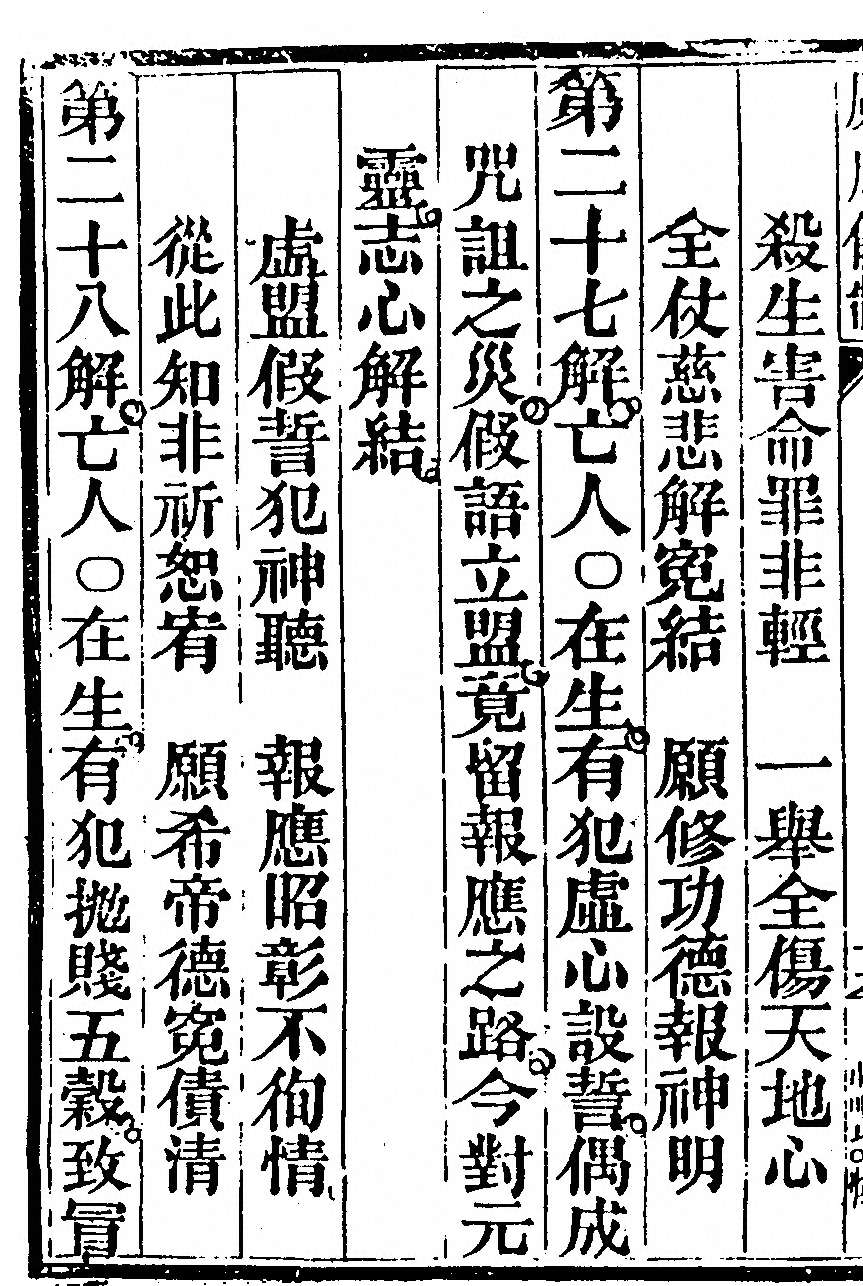 殺生害命罪非輕　一舉全傷天地心
全仗慈悲解寃結　願修功德報神明
第二十七解亡人〇在生有犯虛心設誓偶成
咒詛之災假語立盟竟留報應之路今對元
靈志心解結
虛盟假誓犯神聽　報應昭彰不徇情
從此知非祈恕宥　願希帝德寃債清
第二十八解亡人〇在生有犯拋賤五穀致冒